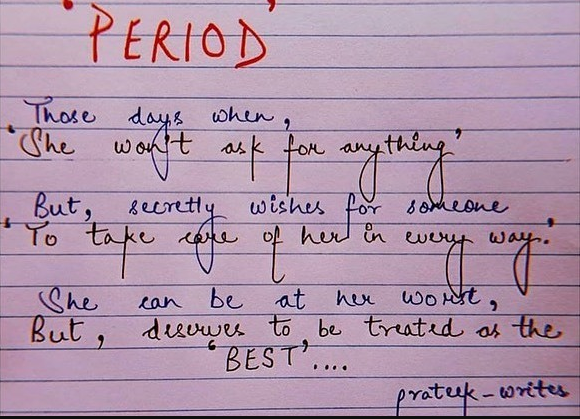 'PERIOD'
Those days when,
'She won't ask for anything'
But, secretly wishes for someone
'To take care of her in every way.'
She can be at her worst,
But, deserves to be treated as the
'BEST'....
prateek-writes